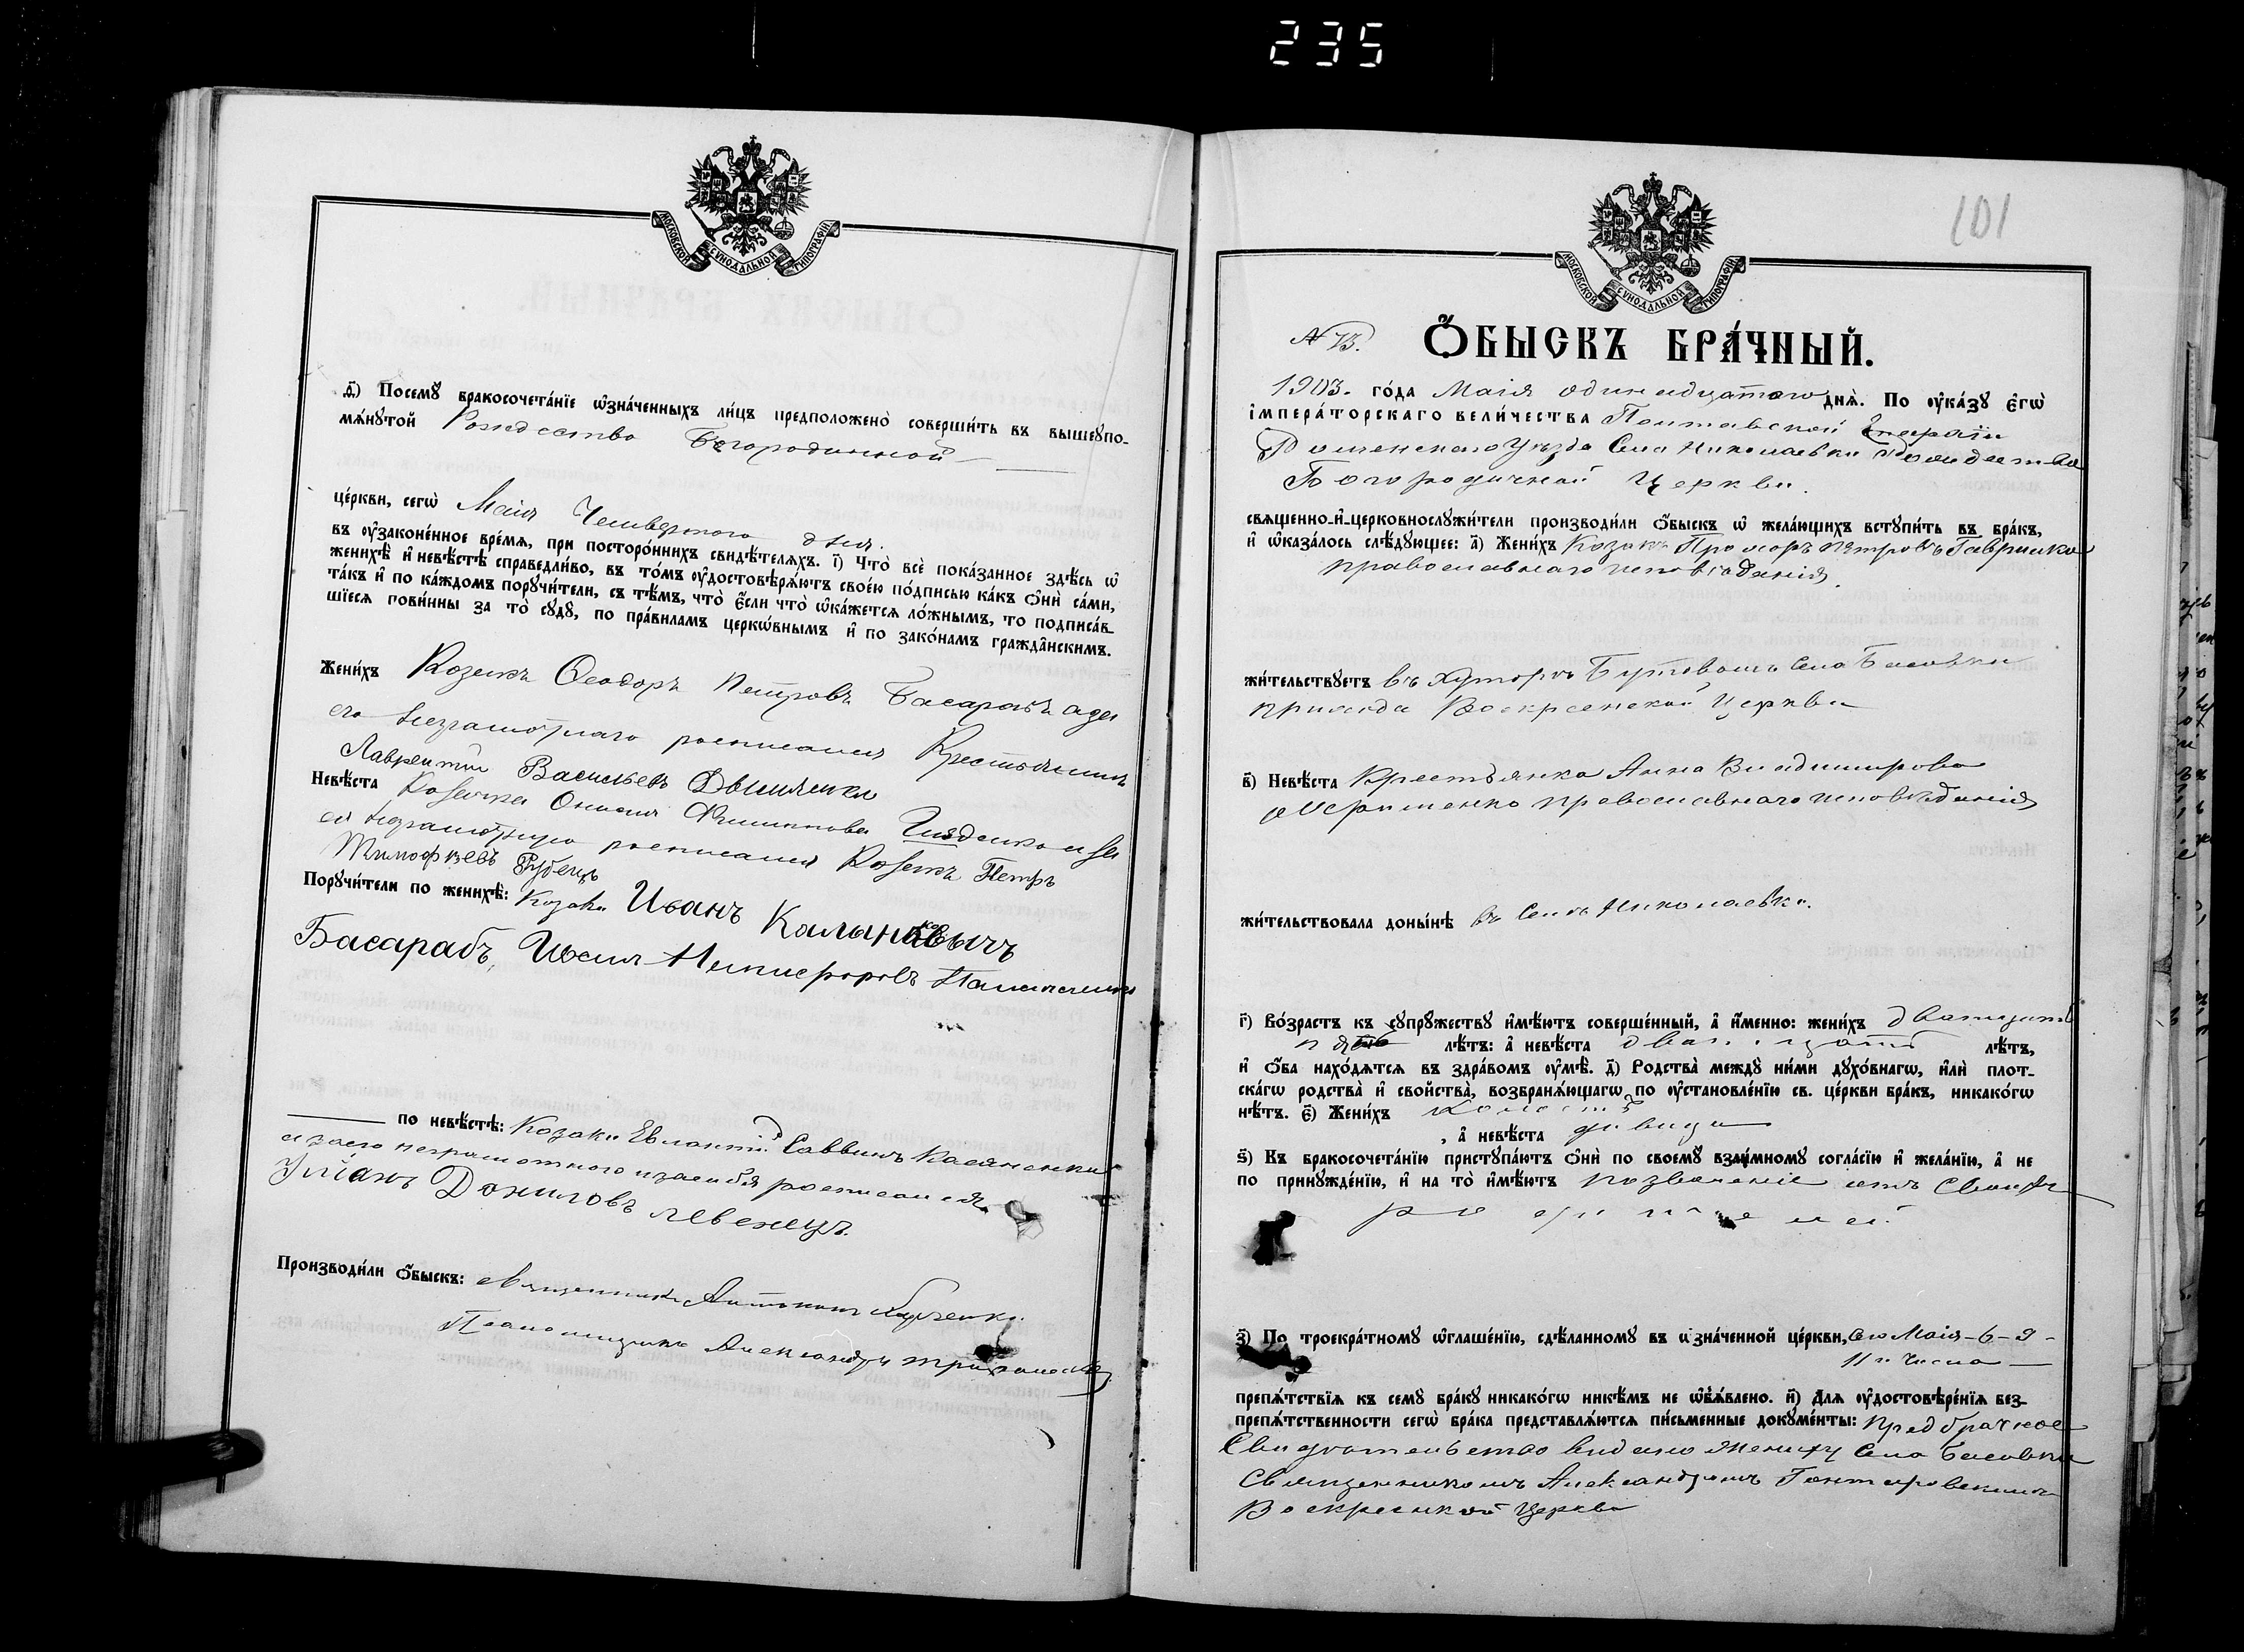 235
МОСКОВСКОЙ СѴНОДАЛЬНОЙ ТИПОГРАФІИ
д҃) Посемꙋ̀ бракосочета́нїе ѡ҆зна́ченныхъ ли́цъ предположено̀ соверши́ть въ вышеꙋпо-
мѧ́нꙋтой Рождество Богородичной
це́ркви, сегѡ̀ Маія Четвертого дня.
въ ᲂу҆зако́ненное вре́мѧ, при посторо́ннихъ свидѣ́телѧхъ. і҃) Что̀ всѐ пока́занное здѣ́сь ѡ҆
женихѣ̀ и҆ невѣ́стѣ справедли́во, въ то́мъ ᲂу҆достовѣрѧ́ютъ свое́ю по́дписью ка́къ ѻ҆нѝ са́ми,
та́къ и҆ по ка́ждомъ порꙋчи́тели, съ тѣ́мъ, что̀ є҆́сли что̀ ѡ҆ка́жетсѧ ло́жнымъ, то подписа́в-
шїесѧ пови́нны за то̀ сꙋдꙋ̀, по пра́виламъ церкѡ́внымъ и҆ по зако́намъ гражда́нскимъ.
Жени́хъ Козакъ Ѳеодоръ Петровъ Басарабъ а за
его неграмотнаго росписался Крестьянинъ
Лаврентій Васильевъ
Невѣ́ста Козачка Филиппова а за
ея неграмотную росписался Козакъ Петръ
Тимофѣевъ Рубецъ
Порꙋчи́тели по женихѣ̀: Козаки Иванъ
Басарабъ, Никифоровъ
по невѣ́стѣ: Козаки Саввинъ Касяненко
а за его неграмотного и за себя росписался
Уліанъ Даниловъ Левенецъ.
Производи́ли ѻ҆́быскъ: Священникъ
Псаломщикъ Александръ
101
МОСКОВСКОЙ СѴНОДАЛЬНОЙ ТИПОГРАФІИ
N 13. Ѻ҆́БЫСКЪ БРА́ЧНЫЙ.
1903. го́да Маія одинадцатого днѧ̀. По ᲂу҆ка́зꙋ є҆гѡ̀
і҆мпера́торскаго вели́чества Полтавской Епархіи
Роменскаго Уѣзда Села Николаевки Рождество
Богородичной Церкви.
свѧще́нно-и҆-церковнослꙋжи́тели производи́ли ѻ҆́быскъ ѡ҆ жела́ющихъ встꙋпи́ть въ бра́къ,
и҆ ѡ҆каза́лось слѣ́дꙋющее: а҃) Жени́хъ Козакъ Прохоръ Петровъ Гавришко
православнаго исповѣданія.
жи́тельствꙋетъ въ Хуторѣ Бутовомъ Села Басовки
прихода Воскресенской Церкви
в҃) Невѣ́ста Крестьянка Анна Владимирова
православнаго исповѣданія
жи́тельствовала доны́нѣ въ Селѣ Николаевки.
г҃) Во́зрастъ къ сꙋпрꙋ́жествꙋ и҆мѣ́ютъ соверше́нный, а҆ и҆́менно: жени́хъ двадцать
пять лѣ́тъ: а҆ невѣ́ста двадцать лѣ́тъ,
и҆ ѻ҆́ба нахо́дѧтсѧ въ здра́вомъ ᲂу҆мѣ̀. д҃) Родства̀ междꙋ̀ ни́ми дꙋхо́внагѡ, и҆лѝ плот-
ска́гѡ родства̀ и҆ сво́йства, возбранѧ́ющагѡ по ᲂу҆становле́нїю св. це́ркви бра́къ, никако́гѡ
нѣ́тъ. є҃) Жени́хъ холостъ
, а҆ невѣ́ста девица
ѕ҃) Къ бракосочета́нїю пристꙋпа́ютъ ѻ҆нѝ по своемꙋ̀ взаи́мномꙋ согла́сїю и҆ жела́нїю, а҆ не
по принꙋжде́нїю, и҆ на то̀ и҆мѣ́ютъ позволеніе отъ своихъ
родителей
з҃) По троекра́тномꙋ ѡ҆глаше́нїю, сдѣ́ланномꙋ въ ѡ҆зна́ченной це́ркви, сего Маія-6-9-
11го числа
препѧ́тствїѧ къ семꙋ̀ бра́кꙋ никако́гѡ никѣ́мъ не ѡ҆б̾ѧ́влено. и҃) Длѧ ᲂу҆достовѣре́нїѧ без-
препѧ́тственности сегѡ̀ бра́ка представлѧ́ютсѧ пи́сьменные докꙋме́нты: Предбрачное
Свидѣтельство видано жениху Села Басовки
Священникомъ Александромъ
Воскресенкой Церкви